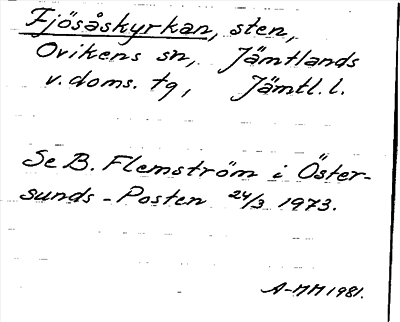 Fjösåskyrkan, sten,
Ovikens sn, Jämtlands
v. doms. tg, Jämtl. l.
Se B. Flemström i Öster-
sunds-Posten 24/3 1973.
A-MM 1981.